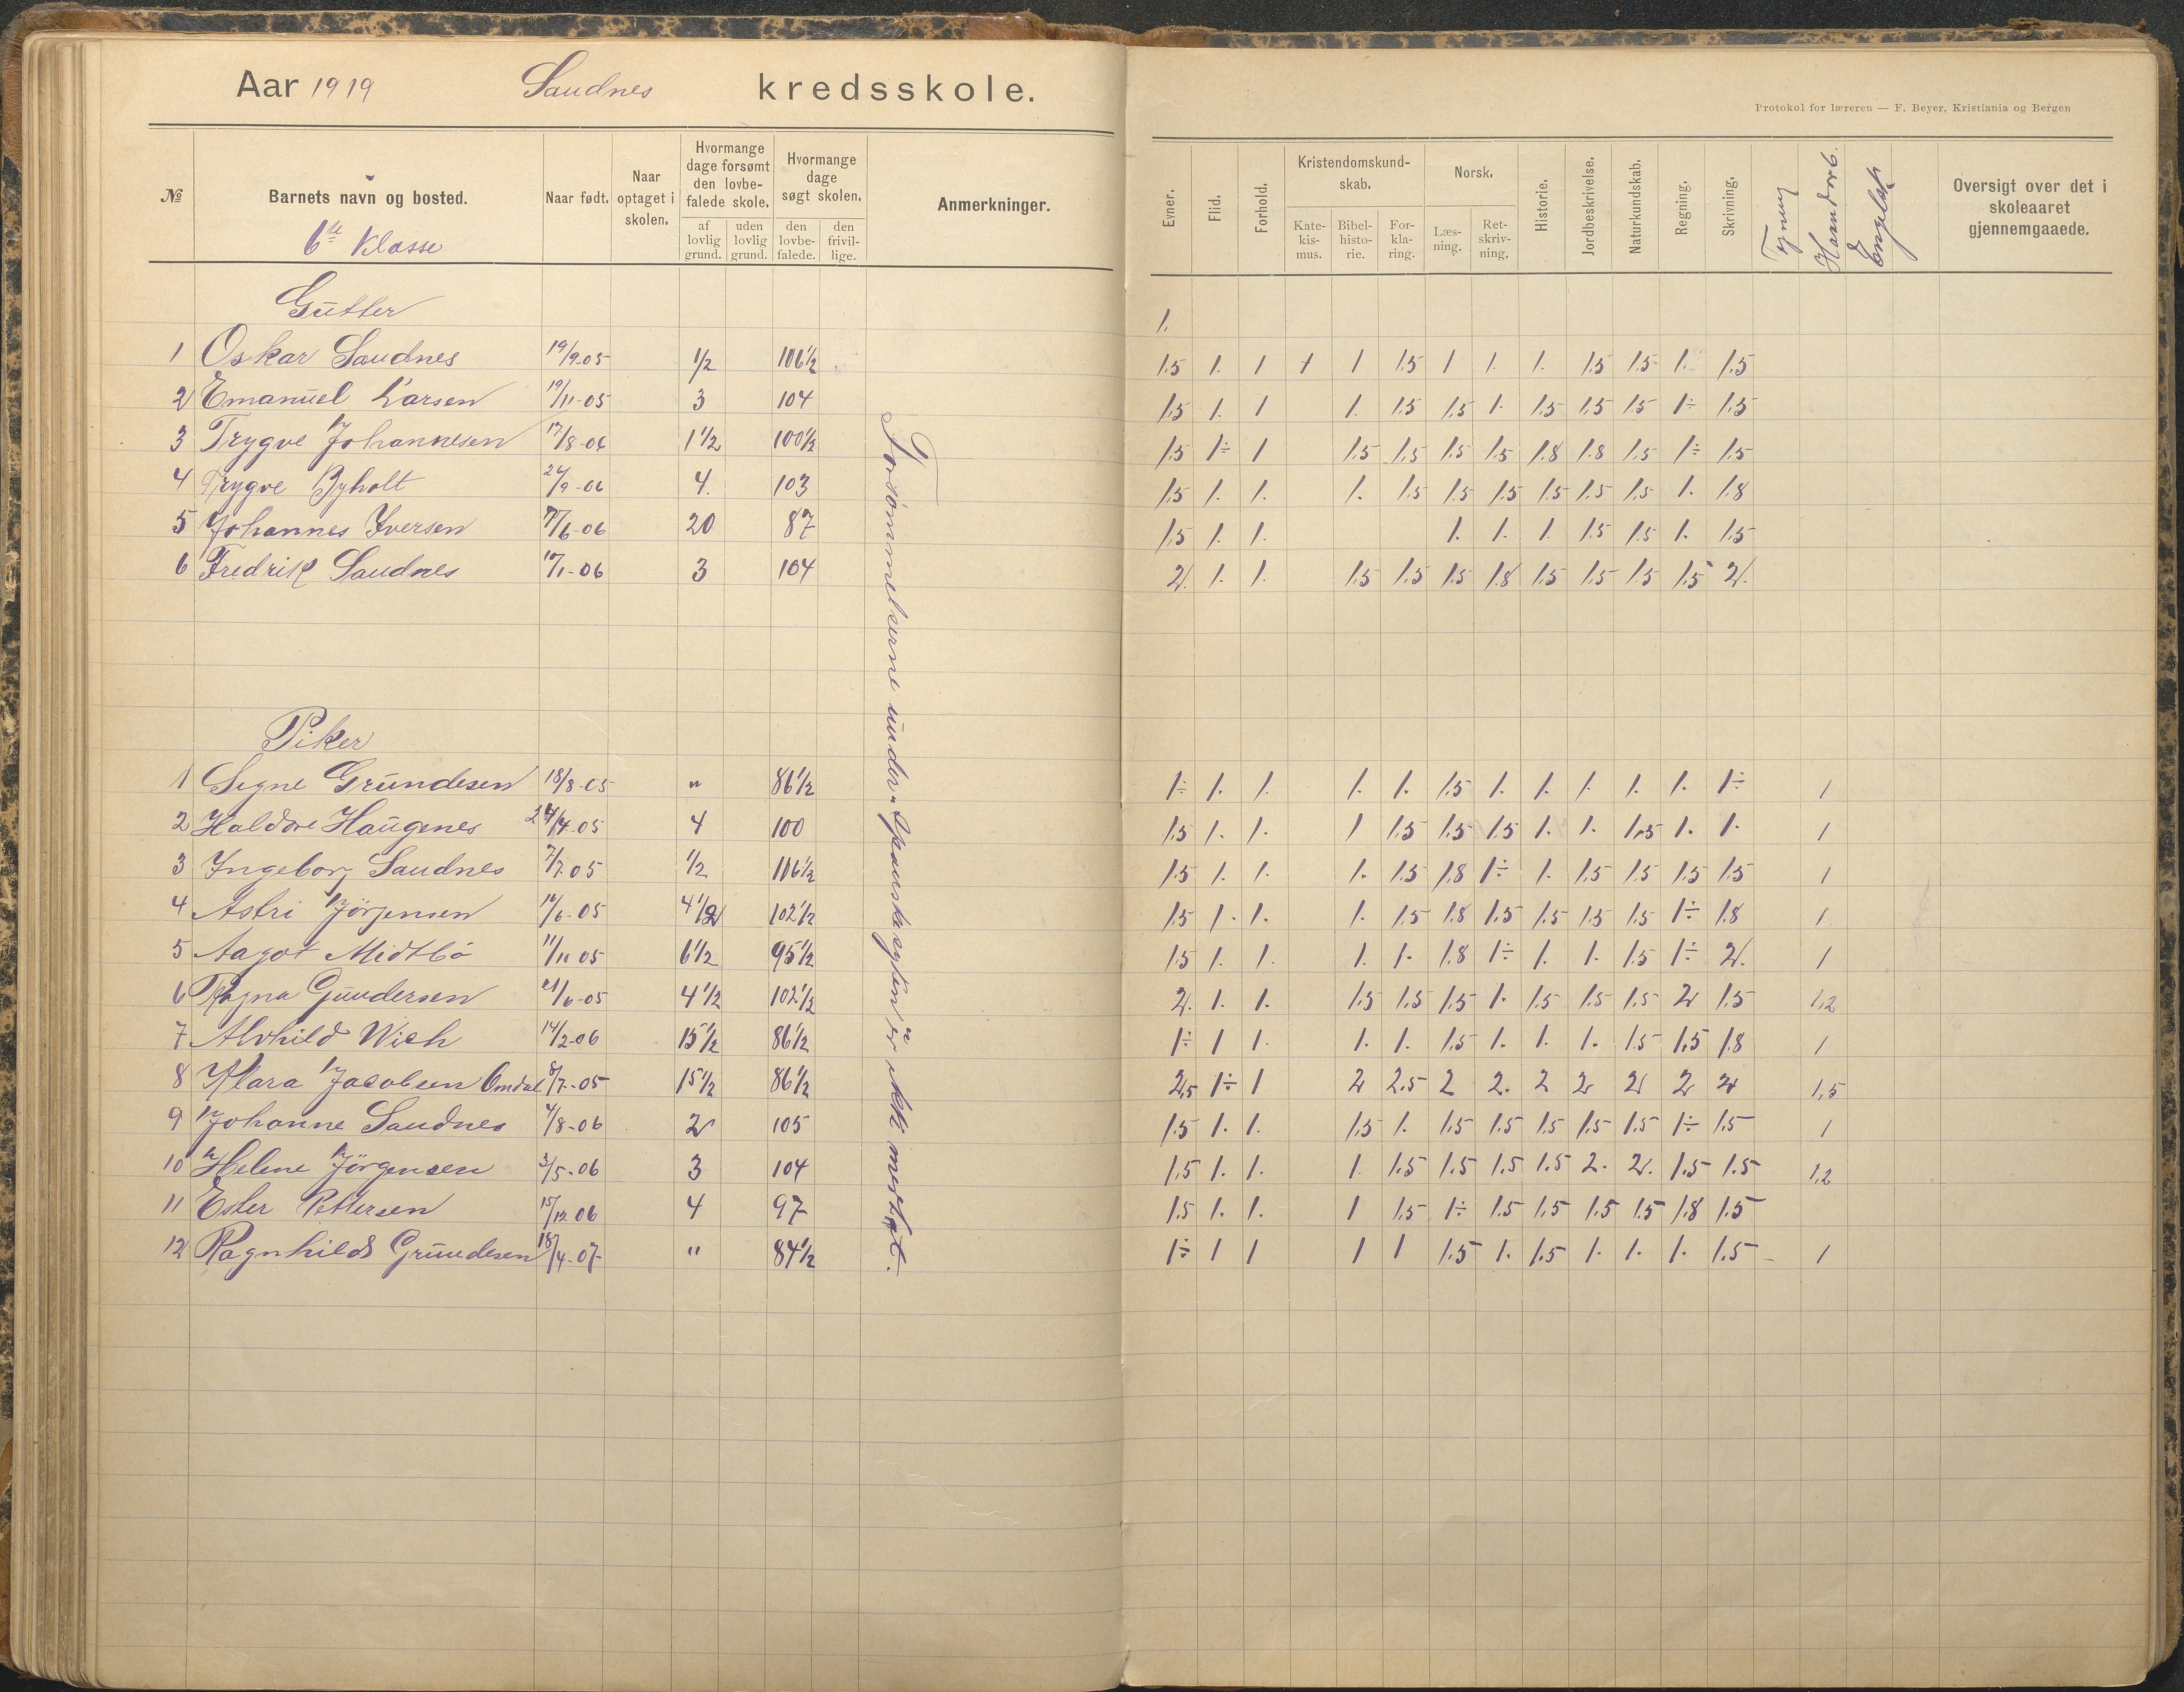 Aar 1919 Saudnes kredsskole.
Protokol for læreren — F. Beyer, Kristiania og Bergen
№ Barnets navn og bosted. Naar født. Naar optaget i skolen. Hvormange dage forsømt den lovbefalede skole. af lovlig grund. uden lovlig grund. Hvormange dage søgt skolen. den lovbefalede. den frivillige. Anmerkninger.
Evner. Flid. Forhold. Kristendomskundskab. Katekismus. Bibelhistorie. Forklaring. Norsk. Læsning. Retskrivning. Historie. Jordbeskrivelse. Naturkundskab. Regning. Skrivning. Haandarb. Engelsk Oversigt over det i skoleaaret gjennemgaaede.
6te Klasse
Gutter 1.
1 Oskar Saudnes 19/9.05 1/2 106 1/2 1.5 1. 1 1 1 1.5 1 1. 1. 1.5 1.5 1. 1.5
2 Emanuel Larsen 19/11-05 3 104 1.5 1. 1 1. 1.5 1.5 1. 1.5 1.5 1.5 1÷ 1.5
3 Trygve Johannesen 17/8-06 1 1/2 100 1/2 1.5 1÷ 1 1.5 1.5 1.5 1.5 1.8 1.8 1.5 1÷ 1.5
4 Trygve Byholt /9-06 4. 103 1.5 1. 1. 1. 1.5 1.5 1.5 1.5 1.5 1.5 1. 1.8
5 Johannes Iversen /6-06 20 87 1.5 1. 1. 1. 1. 1. 1.5 1.5 1. 1.5
6 Fredrik Saudnes /1-06 3 104 2. 1. 1. 1.5 1.5 1.5 1.8 1.5 1.5 1.5 1.5 2.
Piker
1 Signe Grundesen 18/8-05 " 86 1/2 1÷ 1. 1. 1. 1. 1.5 1. 1. 1. 1. 1. 1÷ 1
2 Haldore Haugenes 24/4-05 4 100 1.5 1. 1. 1 1.5 1.5 1.5 1. 1. 1.5 1. 1. 1
3 Ingeborg Saudnes 7/7.05 1/2 106 1/2 1.5 1. 1. 1. 1.5 1.8 1÷ 1. 1.5 1.5 1.5 1.5 1
4 Astri Jörgensen /6-05 4 1/2 102 1/2 1.5 1. 1. 1. 1.5 1.8 1.5 1.5 1.5 1.5 1÷ 1.8 1
5 Aagot Midtbö 11/11 05 6 1/2 95 1/2 1.5 1. 1. 1. 1. 1.8 1÷ 1. 1. 1.5 1÷ 2. 1
6 Ragna Gundersen 21/6-05 4 1/2 102 1/2 2. 1. 1. 1.5 1.5 1.5 1. 1.5 1.5 1.5 2 1.5 1,2
7 Alvhild Wich 14/2-06 15 1/2 86 1/2 1÷ 1 1. 1. 1. 1.5 1. 1. 1. 1.5 1.5 1.8 1
8 Klara Jacobsen Omdal 8/7-05 15 1/2 86 1/2 2,5 1÷ 1 2 2.5 2 2. 2 2 2 2 2 1,5
9 Johanne Saudnes 4/8-06 2 105 1.5 1. 1. 1.5 1. 1.5 1.5 1.5 1.5 1.5 1÷ 1.5 1
10 Helene Jörgensen 3/5-06 3 104 1,5 1. 1. 1. 1.5 1.5 1.5 1.5 2. 2. 1.5 1.5 1,2
11 Ester Pettersen 15/12 06 4 97 1.5 1. 1. 1 1.5 1÷ 1.5 1.5 1.5 1.5 1.8 1.5
12 Ragnhild Grundesen 18/4-07 " 84 1/2 1÷ 1 1 1 1 1.5 1. 1.5 1. 1. 1. 1.5 1
Forsømmelserne under "Spanskesyken" er ikke medtat.